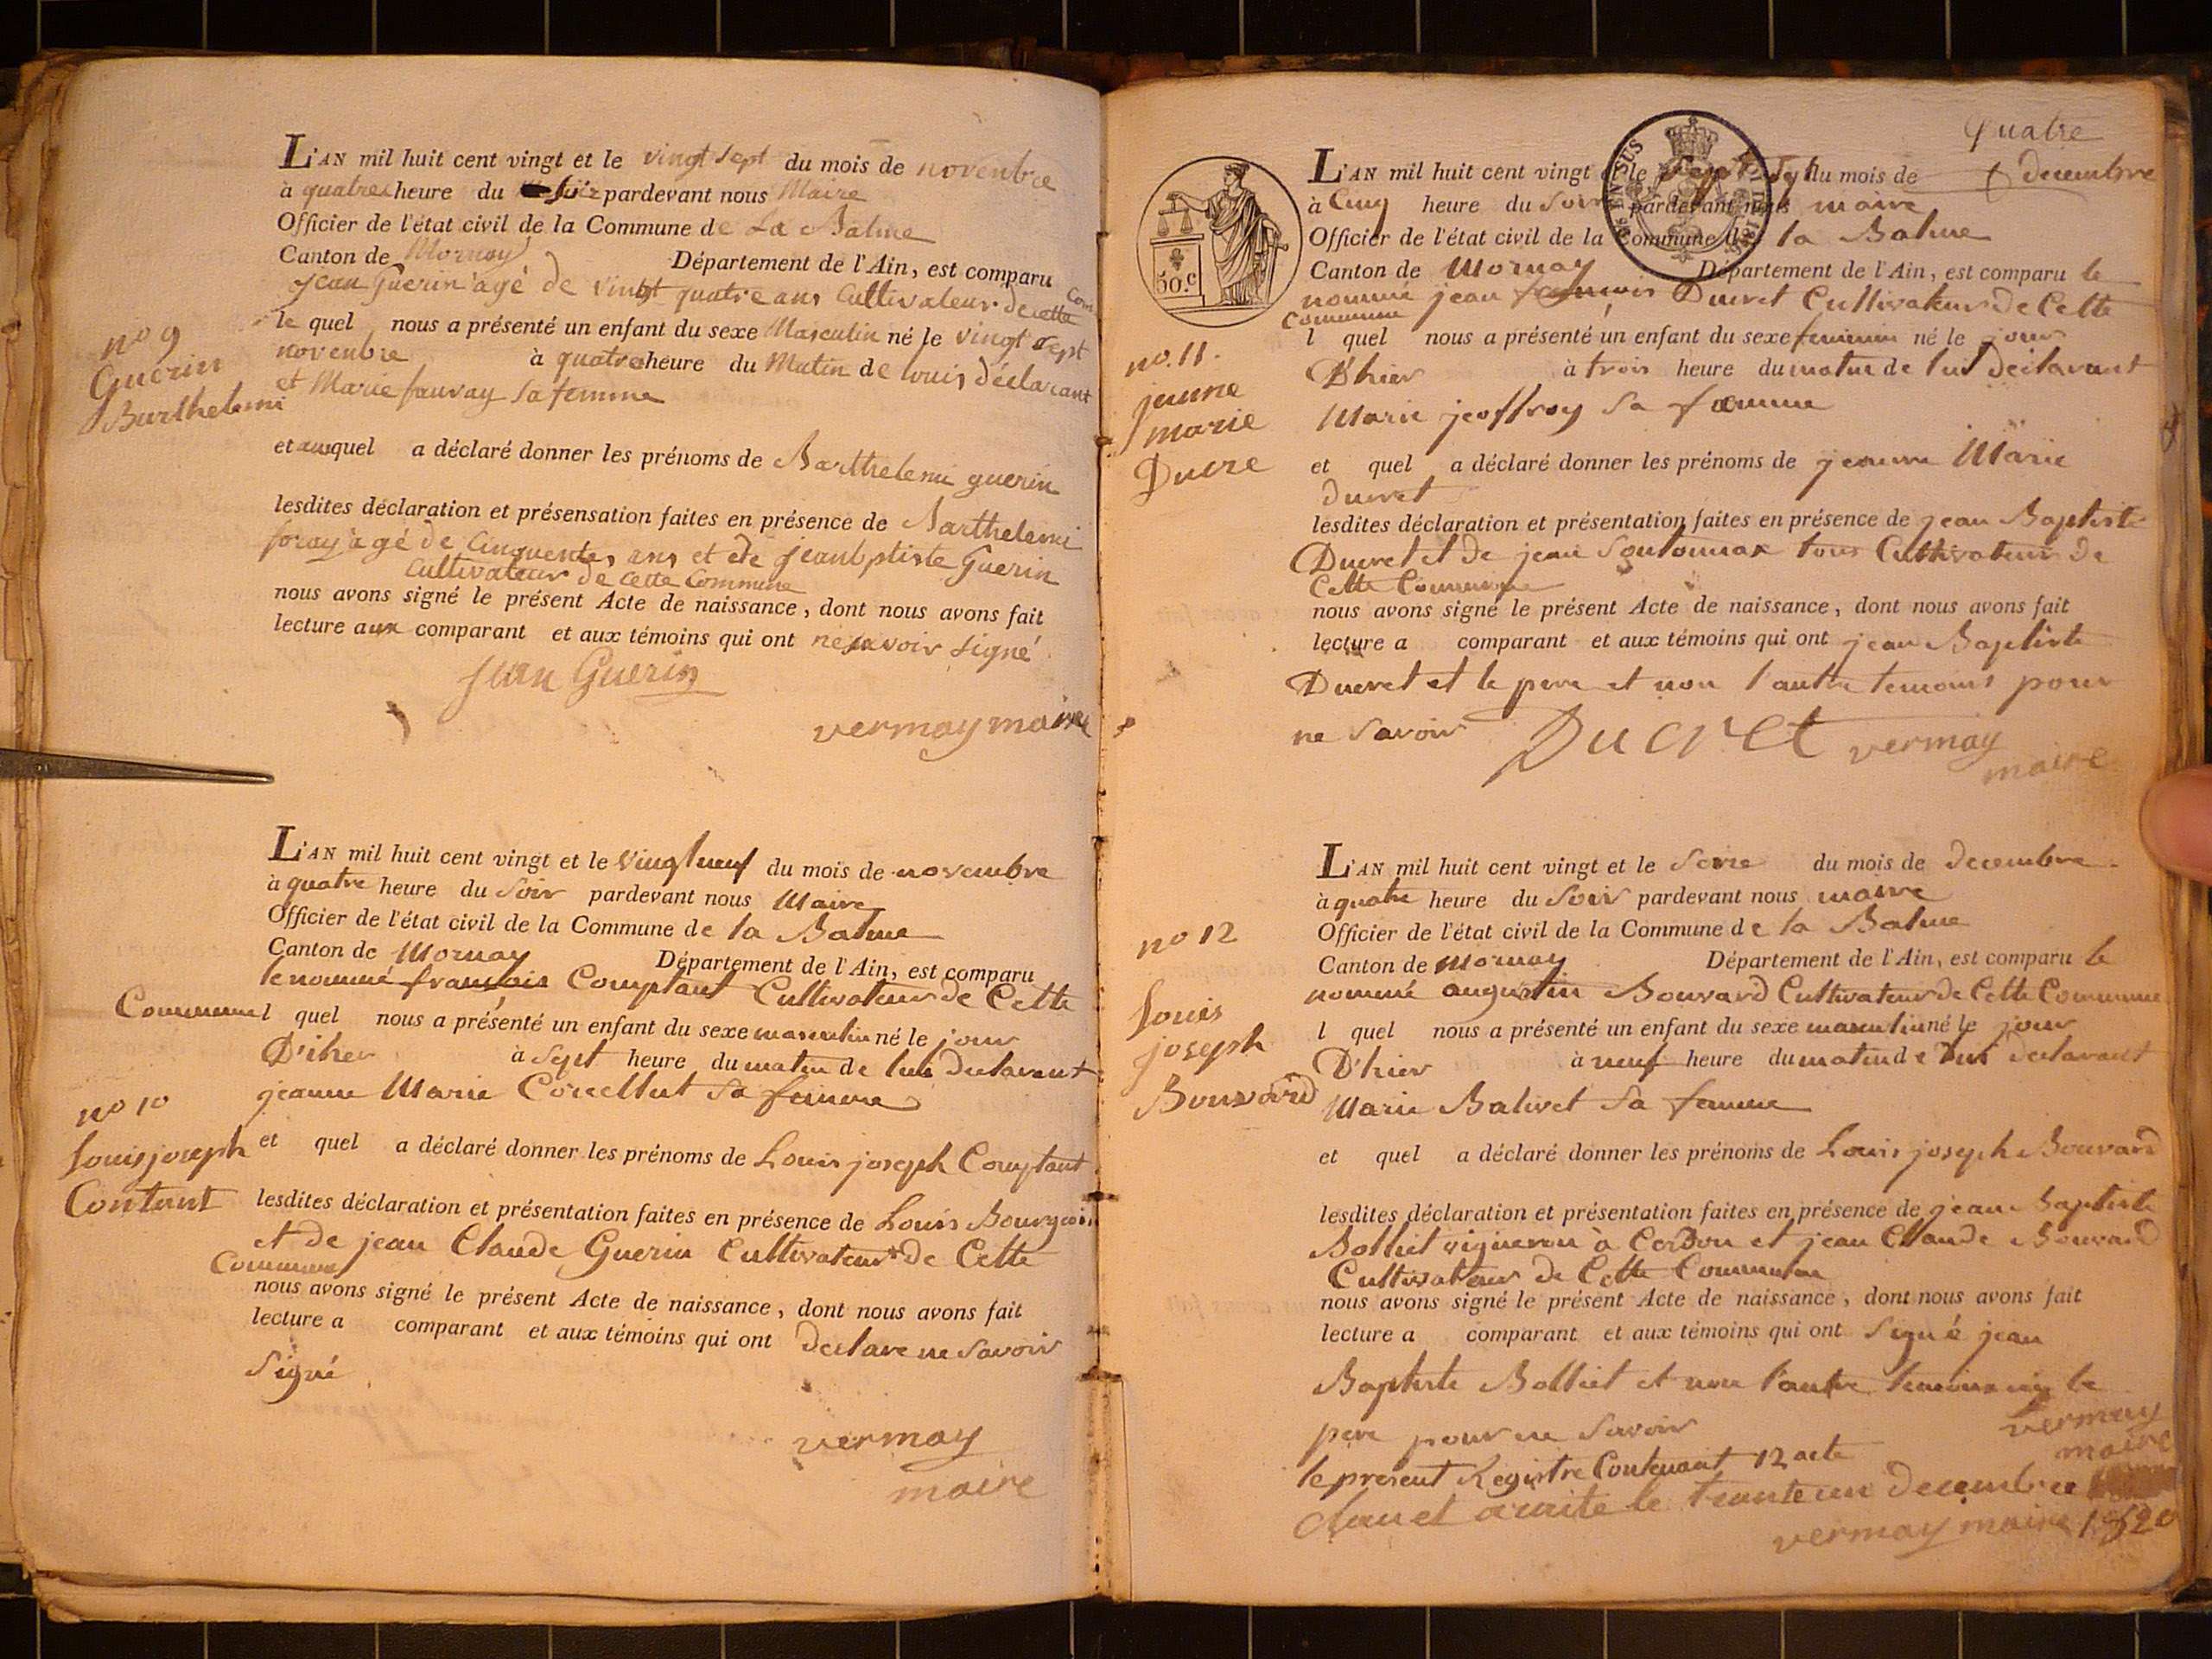 L'AN mil huit cent vingt et le vingt sept du mois de novembre
à quatre heure du soir pardevant nous Maire
Officier de l'état civil de la Commune de La Balme
Canton de Mornay Département de l'Ain, est comparu
jean Guerin agé de vingt quatre ans Cultivateur de cette Com
le quel nous a présenté un enfant du sexe Masculin né le vingt sept
novenbre à quatre heure du Matin de louis déclarant
et Marie fauray sa femme
no 9
Guerin
Barthelemi
et auquel a déclaré donner les prénoms de Barthelemi guerin
lesdites déclaration et présensation faites en présence de Barthelemi
foray agé de Cinquentes ans et de jean bptiste Guerin
Cultivateur de cette Commune
nous avons signé le présent Acte de naissance, dont nous avons fait
lecture aux comparant et aux témoins qui ont ne savoir signé
jean Guerin
vermay maire
L'AN mil huit cent vingt et le vingt neuf du mois de novembre
à quatre heure du soir pardevant nous Maire
Officier de l'état civil de la Commune de la Balme
Canton de Mornay Département de l'Ain, est comparu
le nommé francois Comptant Cultivateur de Cette
Commune l quel nous a présenté un enfant du sexe masculin né le jour
D'iher à sept heure du matin de lui declarant
jeanne Marie Corcellut sa femme
no 10
Louis joseph
Contant
et quel a déclaré donner les prénoms de Louis joseph Comptant
lesdites déclaration et présentation faites en présence de Louis Bourgoin
et de jean Claude Guerin Cultivateur de Cette
Commune
nous avons signé le présent Acte de naissance, dont nous avons fait
lecture a comparant et aux témoins qui ont declare ne savoir
signé
vermay
maire
Quatre
L'AN mil huit cent vingt et le sept du mois de decembre
à Cinq heure du soir pardevant nous maire
Officier de l'état civil de la Commune de la Balme
Canton de Mornay Département de l'Ain, est comparu le
nommé jean Ducret Cultivateur de Cette
Commune
50.c
l quel nous a présenté un enfant du sexe feminin né le jour
D'hier à trois heure du matin de lui declarant
Marie jeoffroy sa femme
no. 11.
jeanne
marie
Ducre
et quel a déclaré donner les prénoms de jeanne Marie
ducret
lesdites déclaration et présentation faites en présence de jean Baptiste
Ducret et de jean Soutonnax tous Cultivateur de
Cette Commune
nous avons signé le présent Acte de naissance, dont nous avons fait
lecture a comparant et aux témoins qui ont jean Baptiste
Ducret et le pere et non l'autre temoins pour
ne savoir
Ducret vermay
maire
L'AN mil huit cent vingt et le seize du mois de decembre
à quatre heure du soir pardevant nous maire
Officier de l'état civil de la Commune de la Balme
Canton de Mornay Département de l'Ain, est comparu le
nommé augustin Bouvard Cultivateur de Cette Commune
l quel nous a présenté un enfant du sexe masculin né le jour
D'hier à neuf heure du matin de lui declarant
Marie Balivet sa femme
no 12
Louis
joseph
Bouvard
et quel a déclaré donner les prénoms de Louis joseph Bouvard
lesdites déclaration et présentation faites en présence de jean Baptiste
Bolliet vigneron à Cerdon et jean Claude Bouvard
Cultivateur de Cette Commune
nous avons signé le présent Acte de naissance, dont nous avons fait
lecture a comparant et aux témoins qui ont signé jean
Baptiste Bolliet et non l'autre temoins ny le
pere pour ne savoir
vermay
maire
le present Registre Contenant 12 acte
Clau et araite le trante un decembre
vermay maire 1820